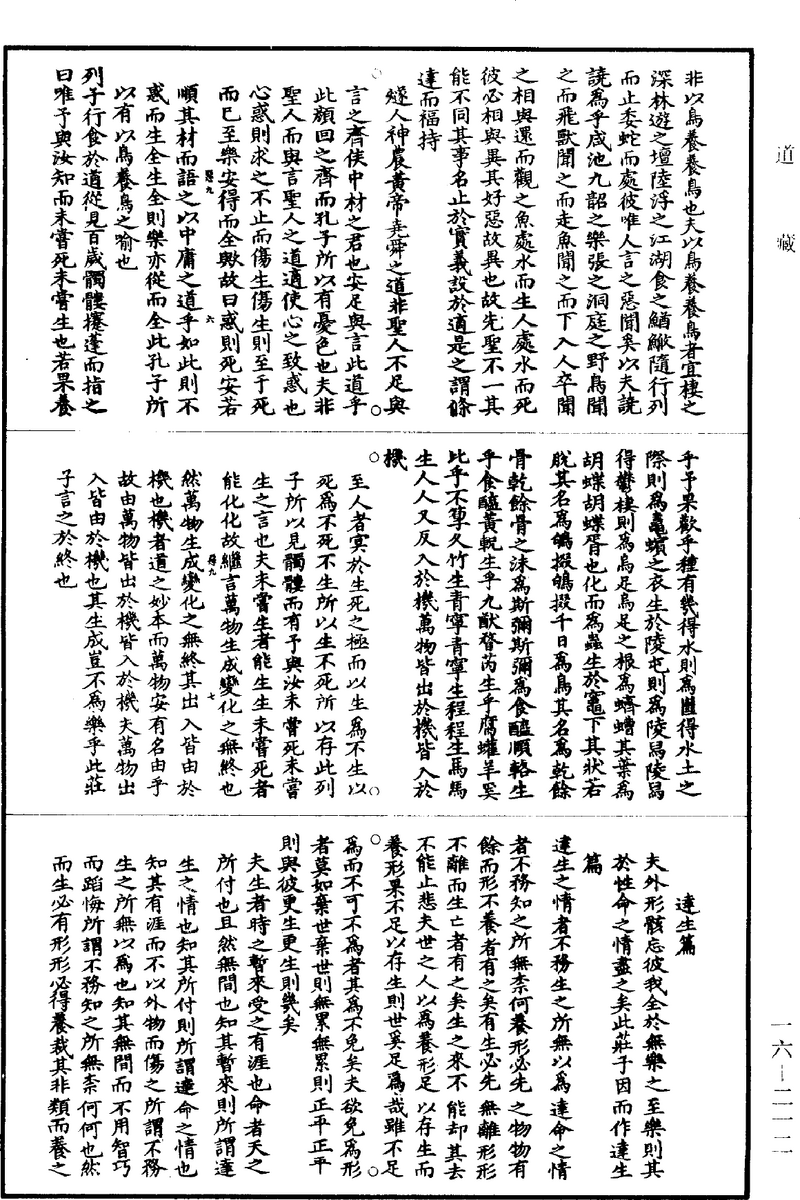 道藏
非以鳥養養鳥也夫以鳥養養鳥者宜棲之
深林遊之壇陸浮之江湖食之鰌鰷隨行列
而止委蛇而處彼唯人言之惡聞奚以夫譊
譊為乎咸池九韶之樂張之洞庭之野鳥聞
之而飛獸聞之而走魚聞之而下入人卒聞
之相與還而觀之魚處水而生人處水而死
彼必相與異其好惡故異也故先聖不一其
能不同其事名止於實義設於適是之謂條
達而福持
燧人神農黃帝堯舜之道非聖人不足與
言之齊侯中材之君也安足與言此道乎
此顏回之齊而孔子所以有憂色也夫非
聖人而與言聖人之道適使心之致惑也
心惑則求之不止而傷生傷生則至于死
而已至樂安得而全歟故曰惑則死安若
順其材而語之以中庸之道乎如此則不
惑而生全生全則樂亦從而全此孔子所
以有以鳥養鳥之喻也
列子行食於道從見百歲髑髏攓蓬而指之
曰唯予與汝知而未嘗死未嘗生也若果養
乎予果歡乎種有幾得水則為㡭得水土之
際則為鼃蠙之衣生於陵屯則為陵舃陵舃
得鬱棲則為烏足烏足之根為蠐螬其葉為
胡蝶胡蝶胥也化而為蟲生於竈下其狀若
脫其名為鴝掇鴝掇千日為鳥其名為乾餘
骨乾餘骨之沬為斯彌斯彌為食醯頤輅生
乎食醯黃軦生乎九猷瞀芮生乎腐蠸羊奚
比乎不箰久竹生青寧青寧生程程生馬馬
生人人又反入於機萬物皆出於機皆入於
機
至人者冥於生死之極而以生為不生以
死為不死不生所以生不死所以存此列
子所以見髑髏而有予與汝未嘗死未嘗
生之言也夫未嘗生者能生生未嘗死者
能化化故繼言萬物生成變化之無終也
然萬物生成變化之無終其出入皆由於
機也機者道之妙本而萬物安有名由乎
故由萬物皆出於機皆入於機夫萬物出
入皆由於機也其生成豈不為樂乎此莊
子言之於終也
達生篇
夫外形骸忘彼我全於無樂之至樂則其
於性命之情盡之矣此莊子因而作達生
篇
達生之情者不務生之所無以為達命之情
者不務知之所無柰何養形必先之物物有
餘而形不養者有之矣有生必先無離形形
不離而生亡者有之矣生之來不能却其去
不能止悲夫世之人以為養形足以存生而
養形果不足以存生則世奚足為哉雖不足
為而不可不為者其為不免矣夫欲免為形
者莫如棄世棄世則無累無累則正平正平
則與彼更生更生則幾矣
夫生者時之暫來受之有涯也命者天之
所付也且然無間也知其暫來則所謂達
生之情也知其所付則所謂達命之情也
知其有涯而不以外物而傷之所謂不務
生之所無以為也知其無間而不用智巧
而蹈悔所謂不務知之所無柰何何也然
而生必有形形必得養裁其非類而養之
一六—二一二